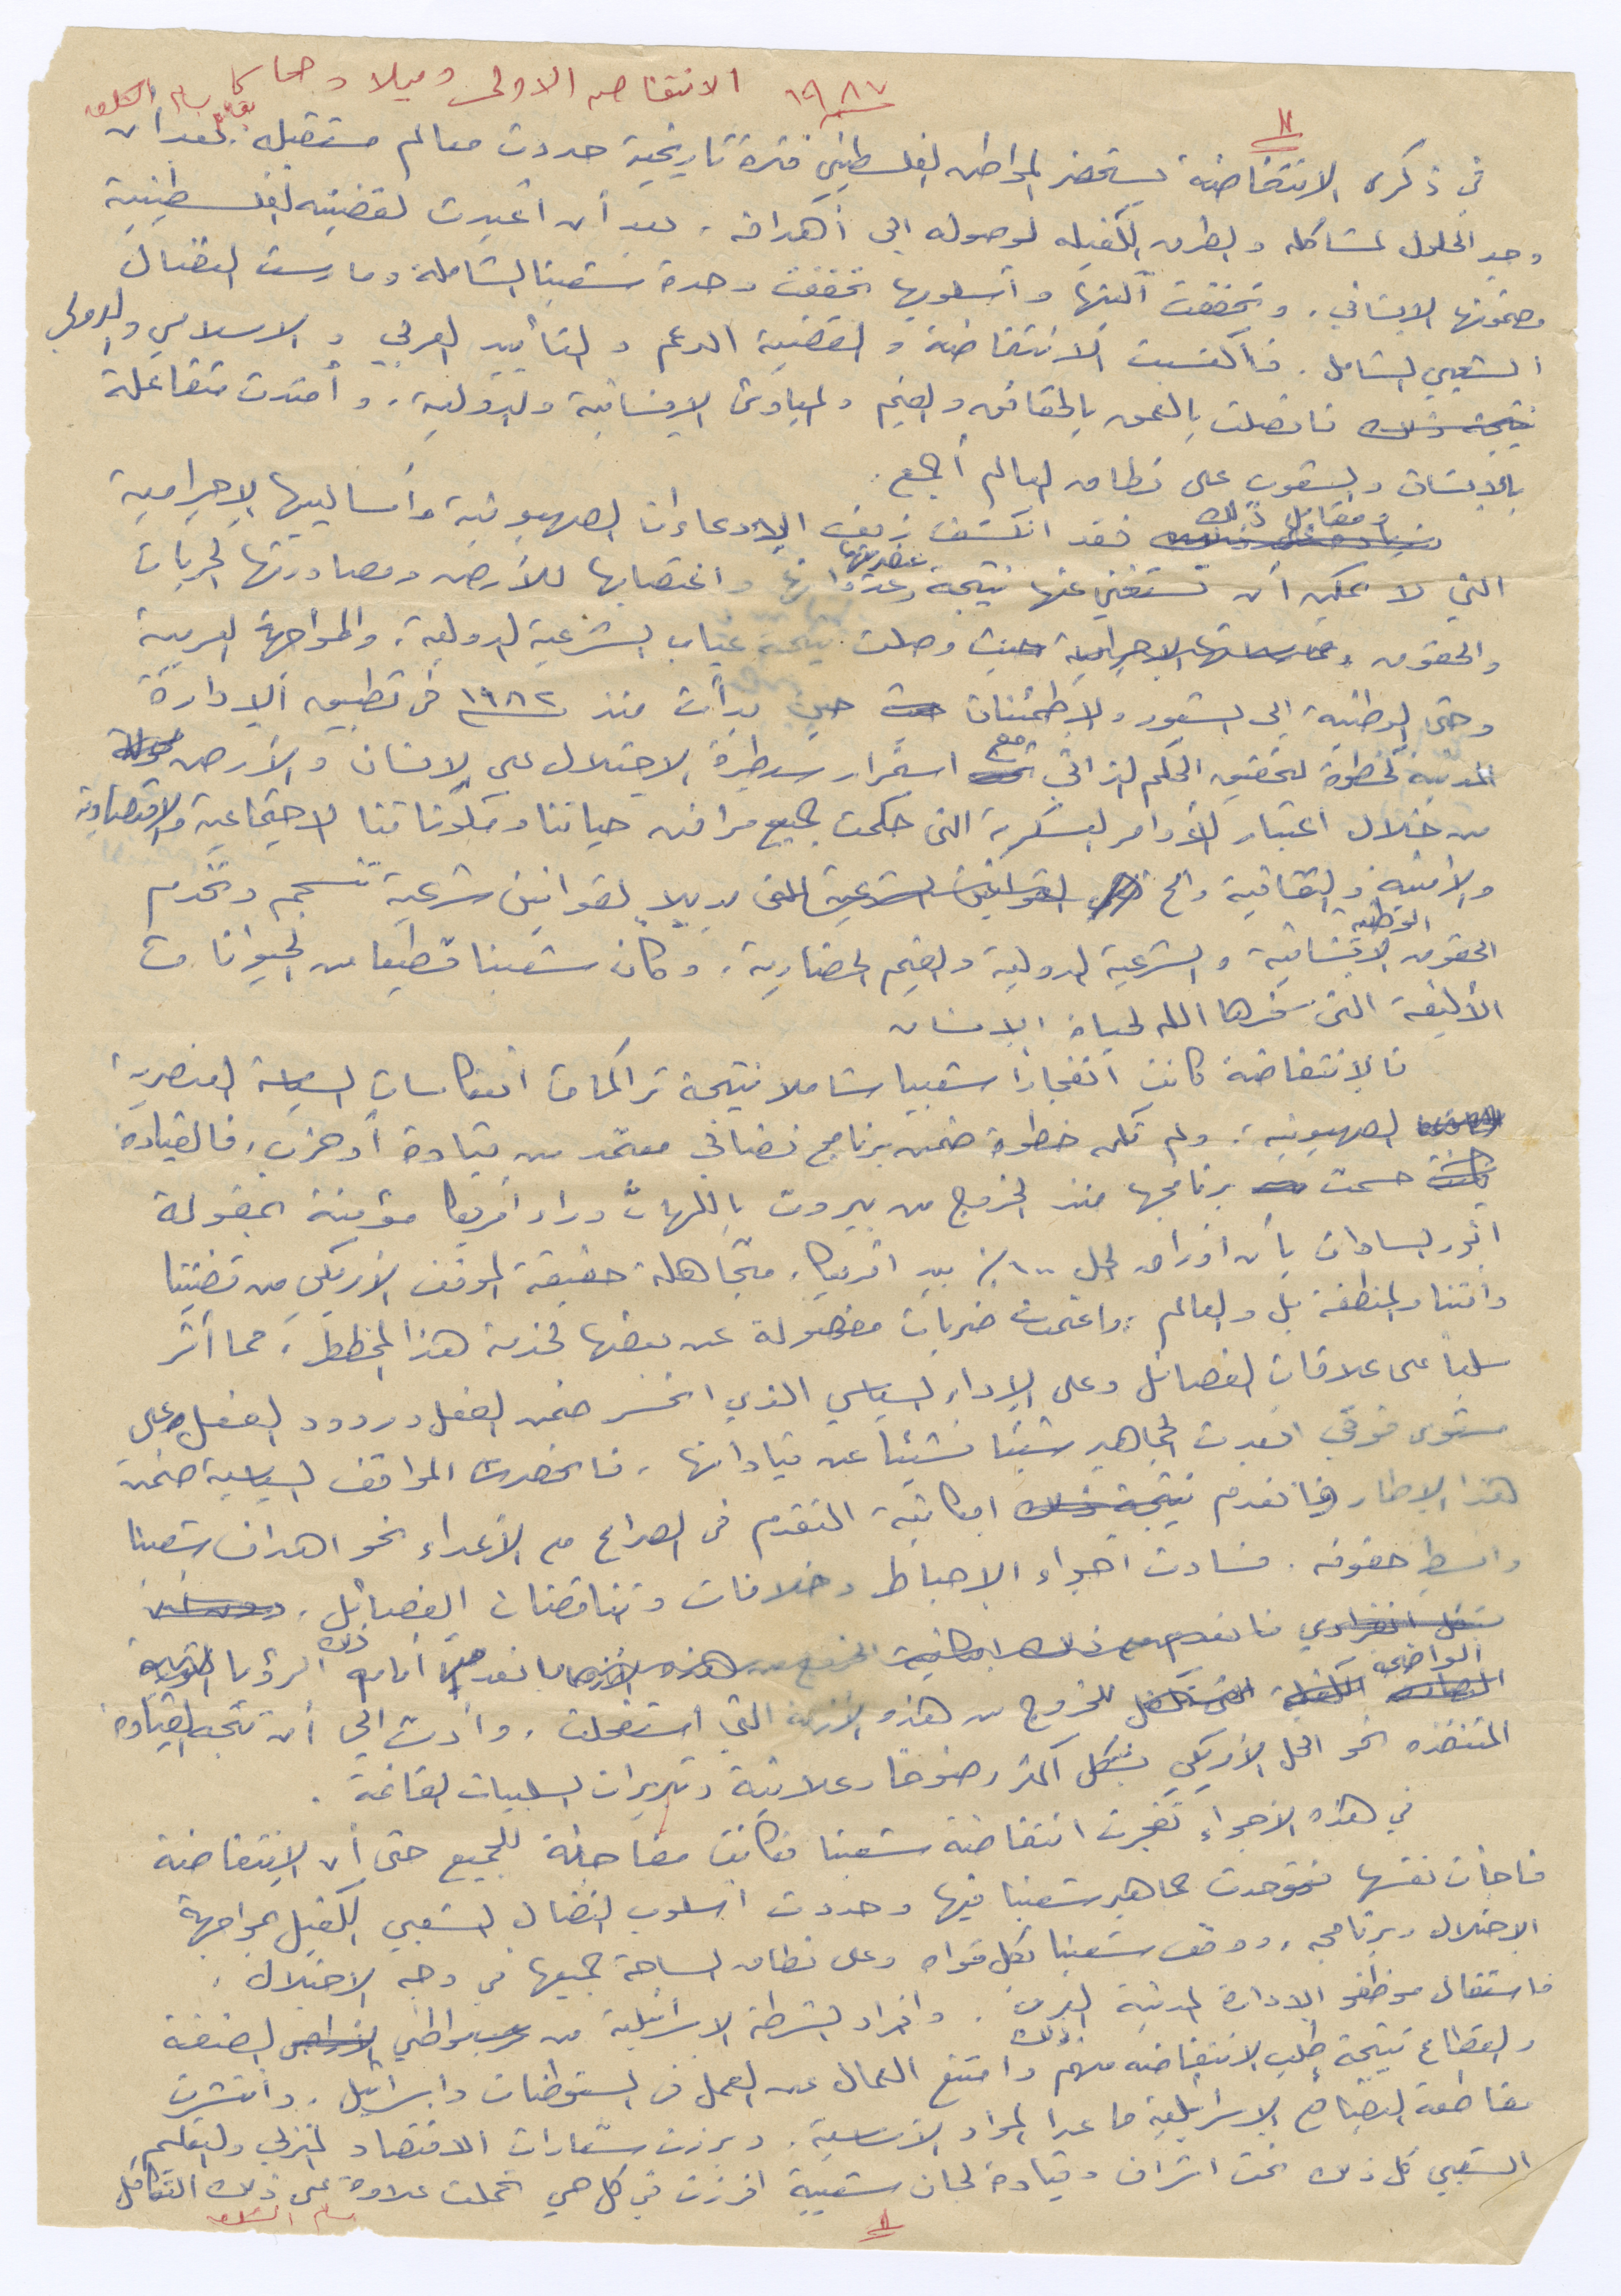 ١٩٨٧ الانتفاضه الاولى وميلاد حماس
بقلم بسام الشكعه
١١
في ذكرى الانتفاضة يستحضر المواطن الفلسطيني فترة تاريخية حددت معالم مستقبله. بعد أن
وجد الحلول لمشاكله والطرق الكفيله لوصوله الى أهدافه، بعد أن أعيدت لقضيته الفلسطينية
مضمونها الانساني، وتحققت آليتها وأسلوبها تحققت وحدة شعبنا الشاملة ومارست النضال
الشعبي الشامل. فاكتسبت الانتفاضة والقضية الدعم والتأييد العربي والاسلامي والدولي
نتيجة ذلك فاتصلت بالعمق بالحقائق والقيم والمبادئ الإنسانية والدولية، وأمتدت متفاعلة
بالإنسان والشعوب على نطاق العالم أجمع.
ومقابل ذلك فقد انكشف زيف الإدعاءات الصهيونية وأساليبها الإجرامية
التي لا يمكن أن تستغني عنها نتيجة عنصريتها وعدوانها واغتصابها للأرض ومصادرتها لحريات
والحقوق وممارساتها الاجرامية حيث وصلت نتيجة غياب الشرعية الدولية، والمواجهة العربية
وحتى الوطنية الى الشعور والاطمئنان حيث حين بدأت منذ ١٩٨٢ في تطبيق الإدارة
المدنية كخطوة لتحقيق الحكم الذاتي مع استمرار سيطرة الاحتلال على الإنسان والأرض
من خلال اعتبار الأوامر العسكرية التي حكمت جميع مرافق حياتنا ومكوناتنا الاجتماعية والاقتصادية
والأمنية والثقافية والخ القوانين الشرعية التي بديلا لقوانين شرعية تنسجم وتخدم
الحقوق الوطنيه الإنسانية والشرعية الدولية والقيم الحضارية، وكأن شعبنا قطيعا من الحيوانات
الأليفة التي سخرها الله لحياة الإنسان
فالإنتفاضة كانت انفجارا شعبيا شاملا نتيجة تراكمات انعكاسات السياسة العنصرية
الصهيونية، ولم تكن خطوة ضمن برنامج نضالي معتمد من قيادة أو حزب، فالقيادة
حسمت برنامجها منذ الخروج من بيروت باللهاث وراء أمريكا مؤمنة بمقولة
انور السادات بأن أوراق الحل ١٠٠٪ بيد امريكا، متجاهلة حقيقة الموقف الأمريكي من قضيتنا
وأمتنا والمنطقة بل والعالم، واعتمدت ضربات مفصولة عن بعضها لخدمة هذا المخطط، مما أثر
سلبا على علاقات الفصائل وعلى الإداء السياسي الذي انحسر ضمن الفعل وردود الفعل على
مستوى فوقي ابعدت الجماهير شيئا فشيئا عن قياداتها، فانحصرت المواقف السياسية ضمن
هذا الإطار فانعدم نتيجة ذلك امكانية التقدم في الصراع مع الأعداء نحو اهداف شعبنا
وابسط حقوقه. فسادت اجواء الاحباط وخلافات وتناقضات الفصائل،
بشكل انفرادي فانعدم مع ذلك امكانية الخروج من هذه الأزمة فانعدمت أمام ذلك الرؤيا
الواضحه الكفيلة للخروج من هذه الأزمة التي استفحلت، وأدت الى أن تتجه القيادة
المتنفذه نحو الحل الأمريكي بشكل اكثر وضوحا وعلانية وتبريرات السلبيات القائمة.
في هذه الاجواء تفجرت انتفاضة شعبنا فكانت مفاجئة للجميع حتى أن الإنتفاضة
فاجأت نفسها فتوحدت جماهير شعبنا فيها وحددت اسلوب النضال الشعبي الكفيل بمواجهة
الاحتلال وبرنامجه، ووقف شعبنا بكل قواه وعلى نطاق الساحة جميعها في وجه الاحتلال،
فاستقال موظفو الادارة المدنية العرب، وافراد الشرطة الاسرائيلية من عرب مواطني الأراضي الضفة
والقطاع نتيجة طلب الانتفاضه منهم ذلك وامتنع العمال عن العمل في المستوطنات واسرائيل، وانتشرت
مقاطعة البضائع الاسرائيلية ما عدا المواد الاساسية، وبرزت شعارات الاقتصاد المنزلي والتعليم
الشعبي كل ذلك تحت اشراف وقيادة لجان شعبية افرزت في كل حي تحملت علاوة على ذلك التكافل
بسام الشكعه
١١